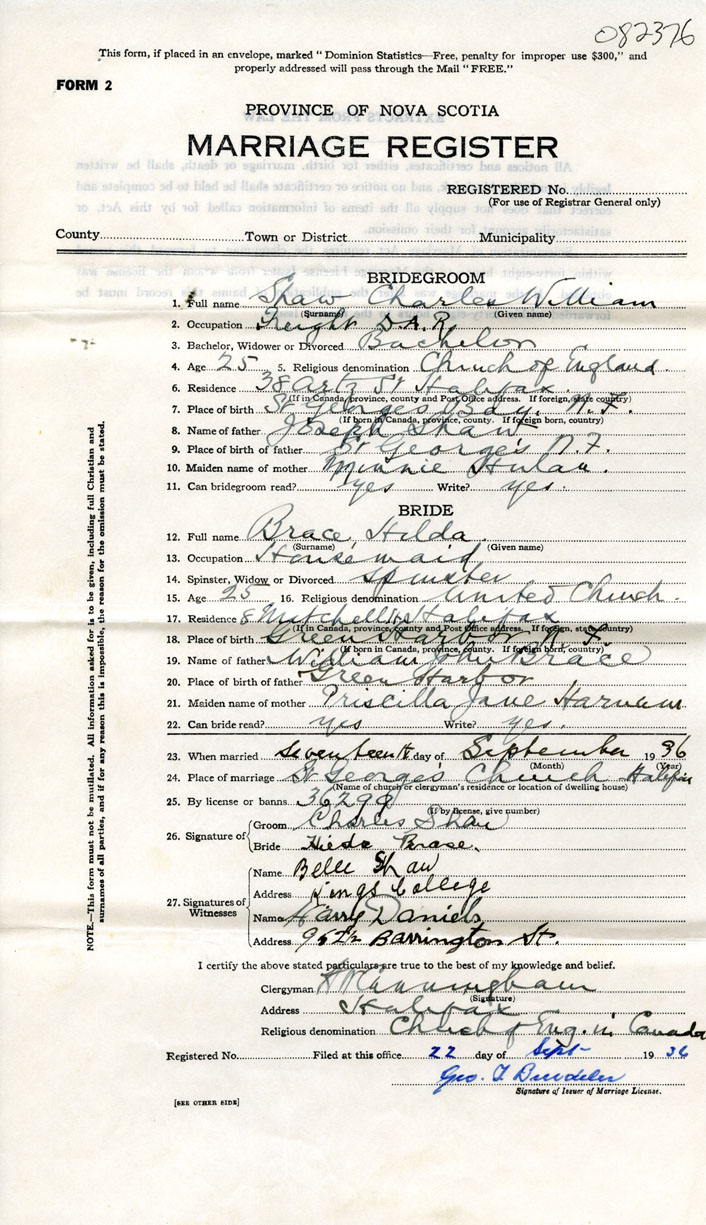 082376
This form, if placed in an envelope, marked "Dominion Statistics—Free, penalty for improper use $300," and
properly addressed will pass through the Mail "FREE."
FORM 2
PROVINCE OF NOVA SCOTIA
MARRIAGE REGISTER
REGISTERED No.
(For use of Registrar General only)
County Town or District Municipality
BRIDEGROOM
1. Full name Shaw Charles William
(Surname) (Given name)
2. Occupation Freight D.A.R.
3. Bachelor, Widower or Divorced Bachelor
4. Age 25 5. Religious denomination Church of England
6. Residence 38 Artz St Halifax
(If in Canada, province, county and Post Office address. If foreign, state country)
7. Place of birth St Georges Bay. N.F.
(If born in Canada, province, county. If foreign born, country)
8. Name of father Joseph Shaw
9. Place of birth of father St George's N.F.
10. Maiden name of mother Minnie Hulan.
11. Can bridegroom read? yes Write? yes.
BRIDE
12. Full name Brace, Hilda.
(Surname) (Given name)
13. Occupation Housemaid
14. Spinster, Widow or Divorced spinster
15. Age 25 16. Religious denomination United Church.
17. Residence 8 Mitchell St Halifax
(If in Canada, province, county and Post Office address. If foreign, state country)
18. Place of birth Green Harbor N.F.
(If born in Canada, province, county. If foreign born, country)
19. Name of father William John Brace
20. Place of birth of father Green Harbor
21. Maiden name of mother Priscilla Jane Harnum
22. Can bride read? yes Write? yes.
23. When married seventeenth day of September 1936
(Month) (Year)
24. Place of marriage St George's Church Halifax
(Name of church or clergyman's residence or location of dwelling house)
25. By license or banns 36299
(If by license, give number)
26. Signature of Groom Charles Shaw
Bride Hilda Brace.
27. Signatures of Witnesses Name Belle Shaw
Address Kings College
Name Harry Daniels
Address 95½ Barrington St.
I certify the above stated particulars are true to the best of my knowledge and belief.
Clergyman Cunningham
(Signature)
Address Halifax
Religious denomination Church of Eng. in Canada
Registered No. Filed at this office 22 day of Sept 1936
Geo. T.
Signature of Issuer of Marriage License.
[SEE OTHER SIDE]
NOTE.—This form must not be mutilated. All information asked for is to be given, including full Christian and
surnames of all parties, and if for any reason this is impossible, the reason for the omission must be stated.